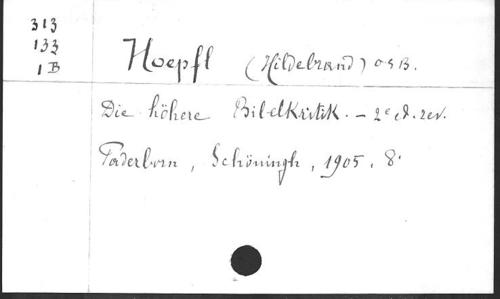 313
133
1 B
Hoepfl (Hildebrand) O S B.
Die höhere Bibelkritik. - 2e éd. rev.
Paderborn, Schöningh, 1905. 8°